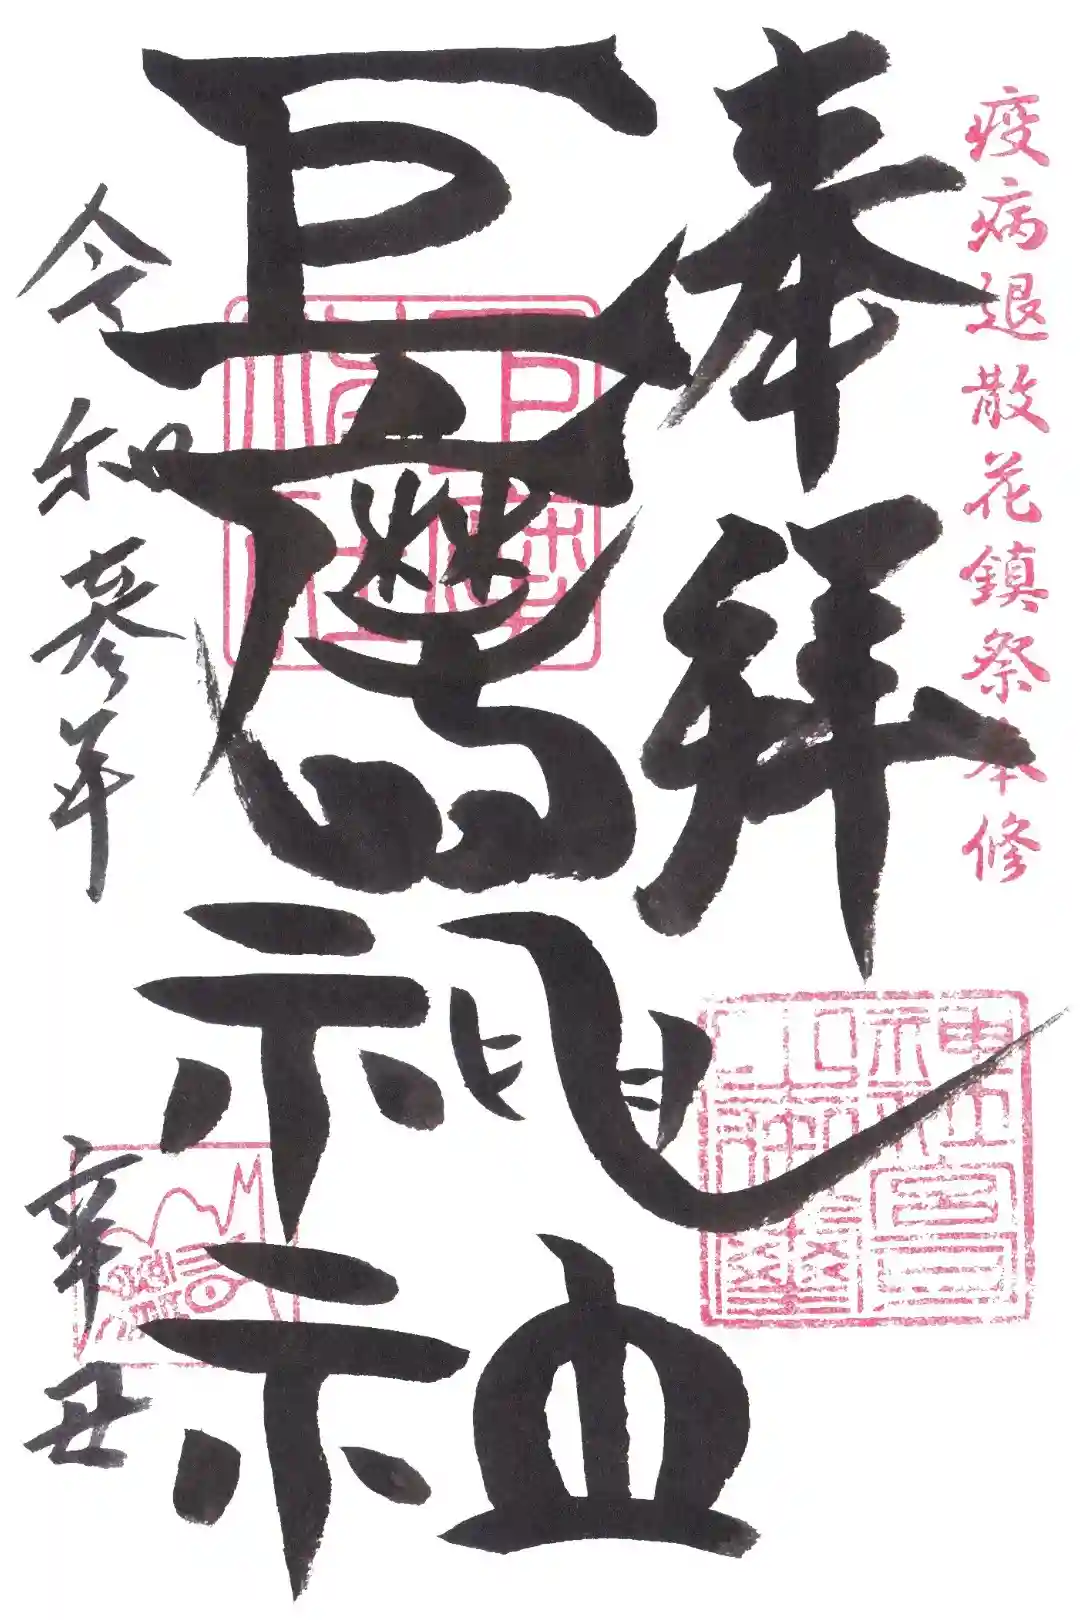 疫病退散花鎮祭奉修
奉拝
巨摩神社
令和参年
辛丑